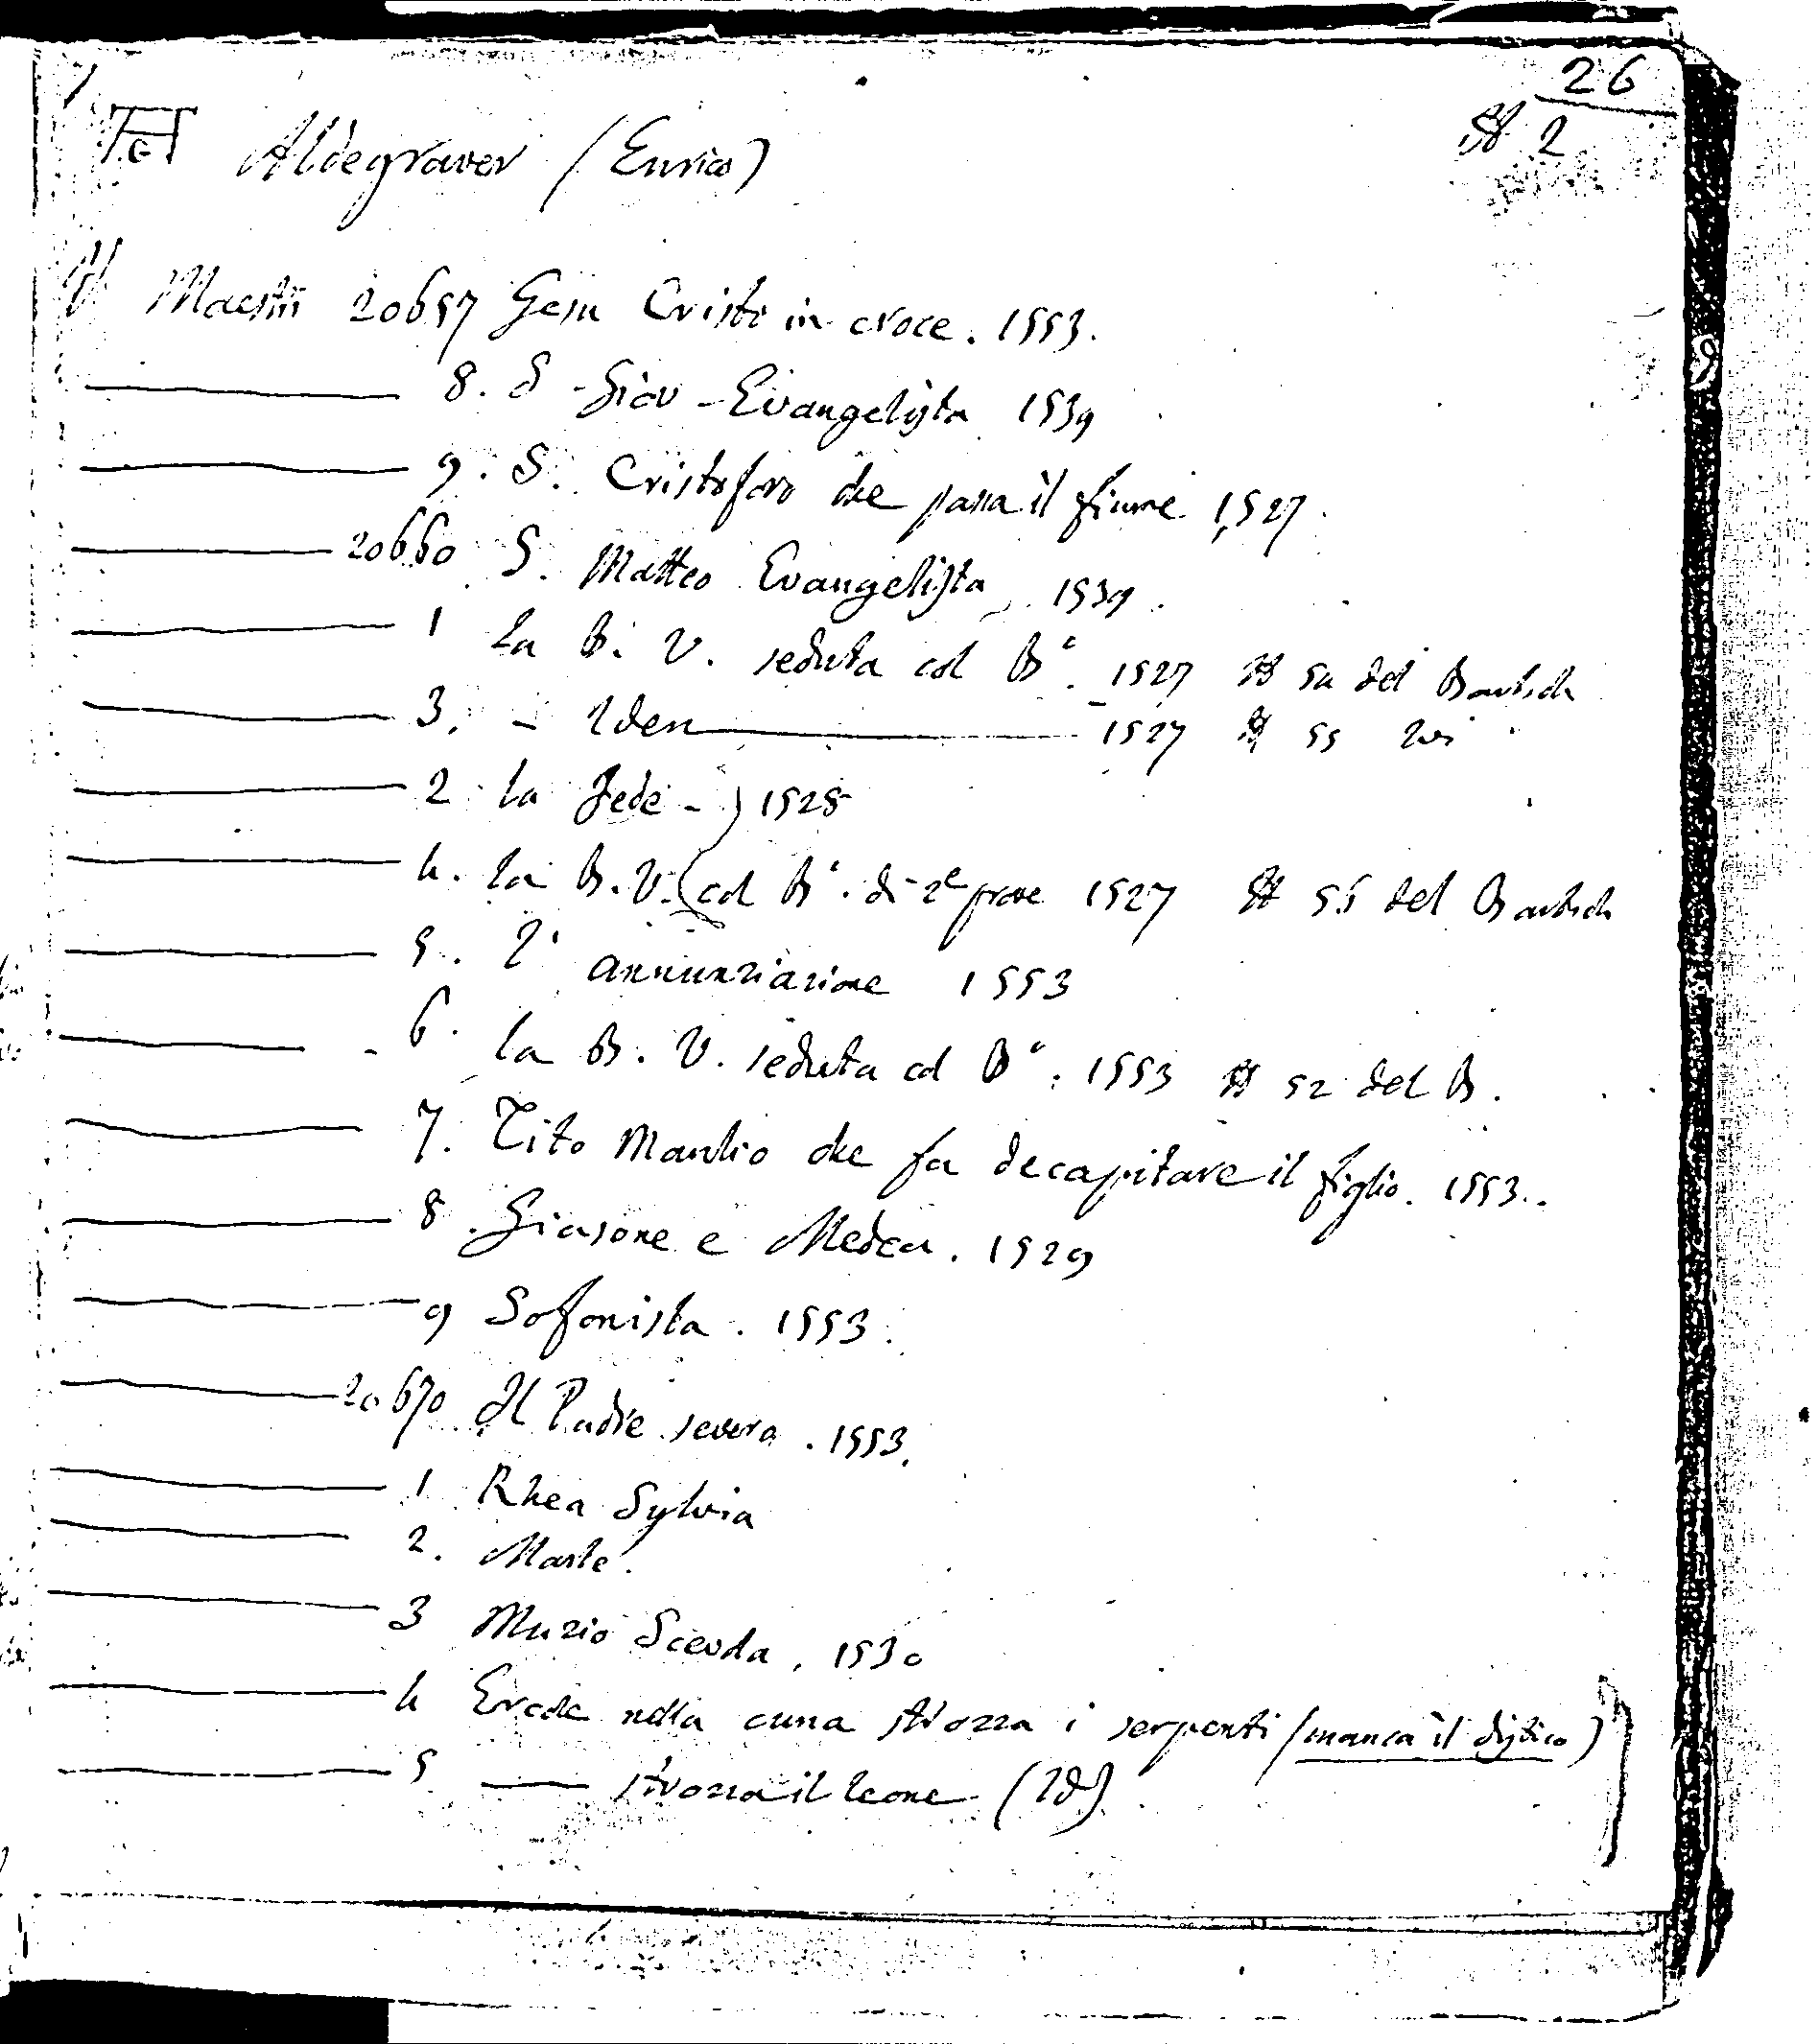 26
№ 2
AG Aldegraver (Enrico)
Maestri 20657 Gesu Cristo in croce. 1553.
8. S. Giov. Evangelista 1539
9. S. Cristoforo che passa il fiume 1527.
20660 S. Matteo Evangelista. 1539.
1 La B. V. seduta col B°. 1527 № 54 del Bartsch
3. - Idem 1527 № 55 ivi
2 la Fede -) 1528
4. la B. V. (col B°. di 2e prove 1527 № 55 del Bartsch
5. L' annunziazione 1553
6. la B. V. seduta col B°. 1553 № 52 del B.
7. Tito Manlio che fa decapitare il figlio. 1553.
8. Giasone e Medea. 1529
9 Sofonista. 1553.
20670 Il Padre severo. 1553.
1 Rhea Sylvia
2. Marte.
3 Muzio Scevola. 1530
4 Ercole nella cuna strozza i serpenti (manca il distico)
5 strozza il leone (Id)